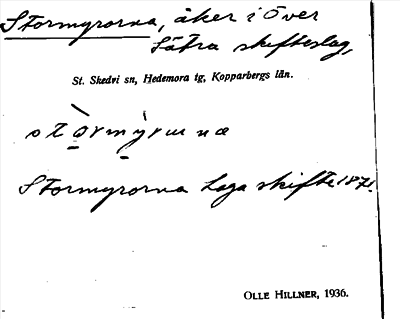 Stormyrorna, åker i Över
Sätra skifteslag,
St. Skedvi sn, Hedemora tg, Kopparbergs län.
Stormyrorna Laga skifte 1871.
OLLE HILLNER, 1936.